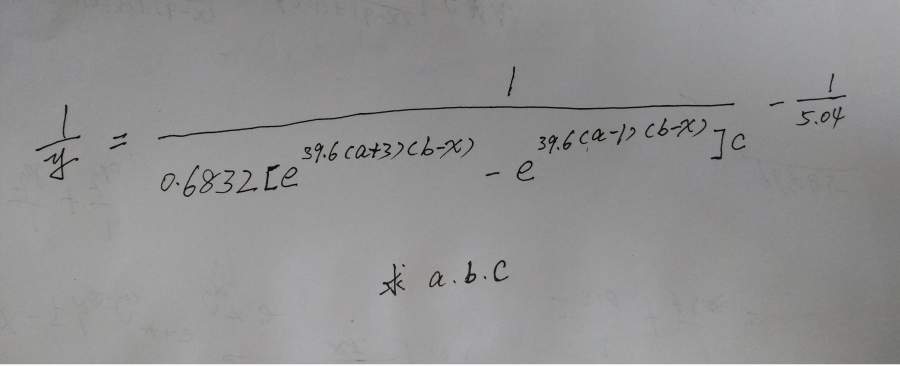 1/y = 1/(0.6832[e^{39.6(a+3)(b-x)} - e^{39.6(a-1)(b-x)}]c) - 1/5.04
求 a.b.c